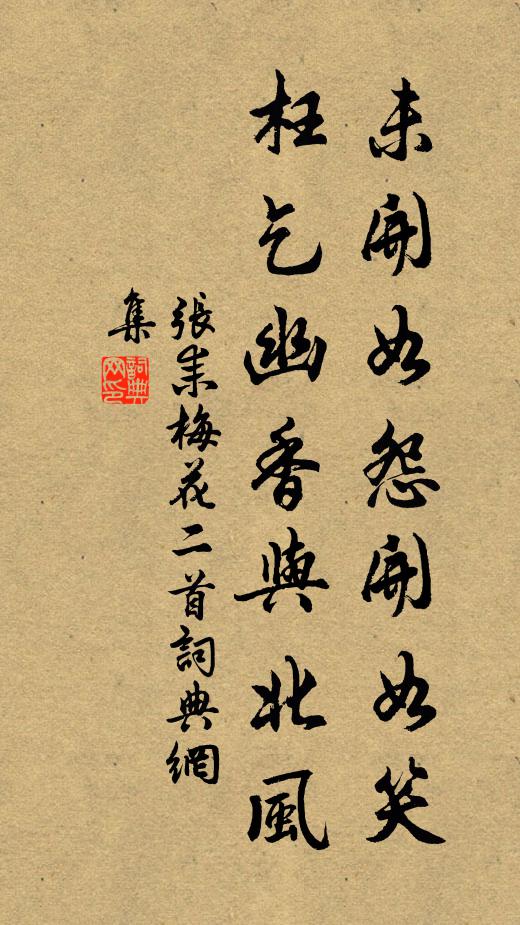 未開如怨開如笑
枉乞幽香與北風
張耒梅花二首詞典網
集
詞典網印